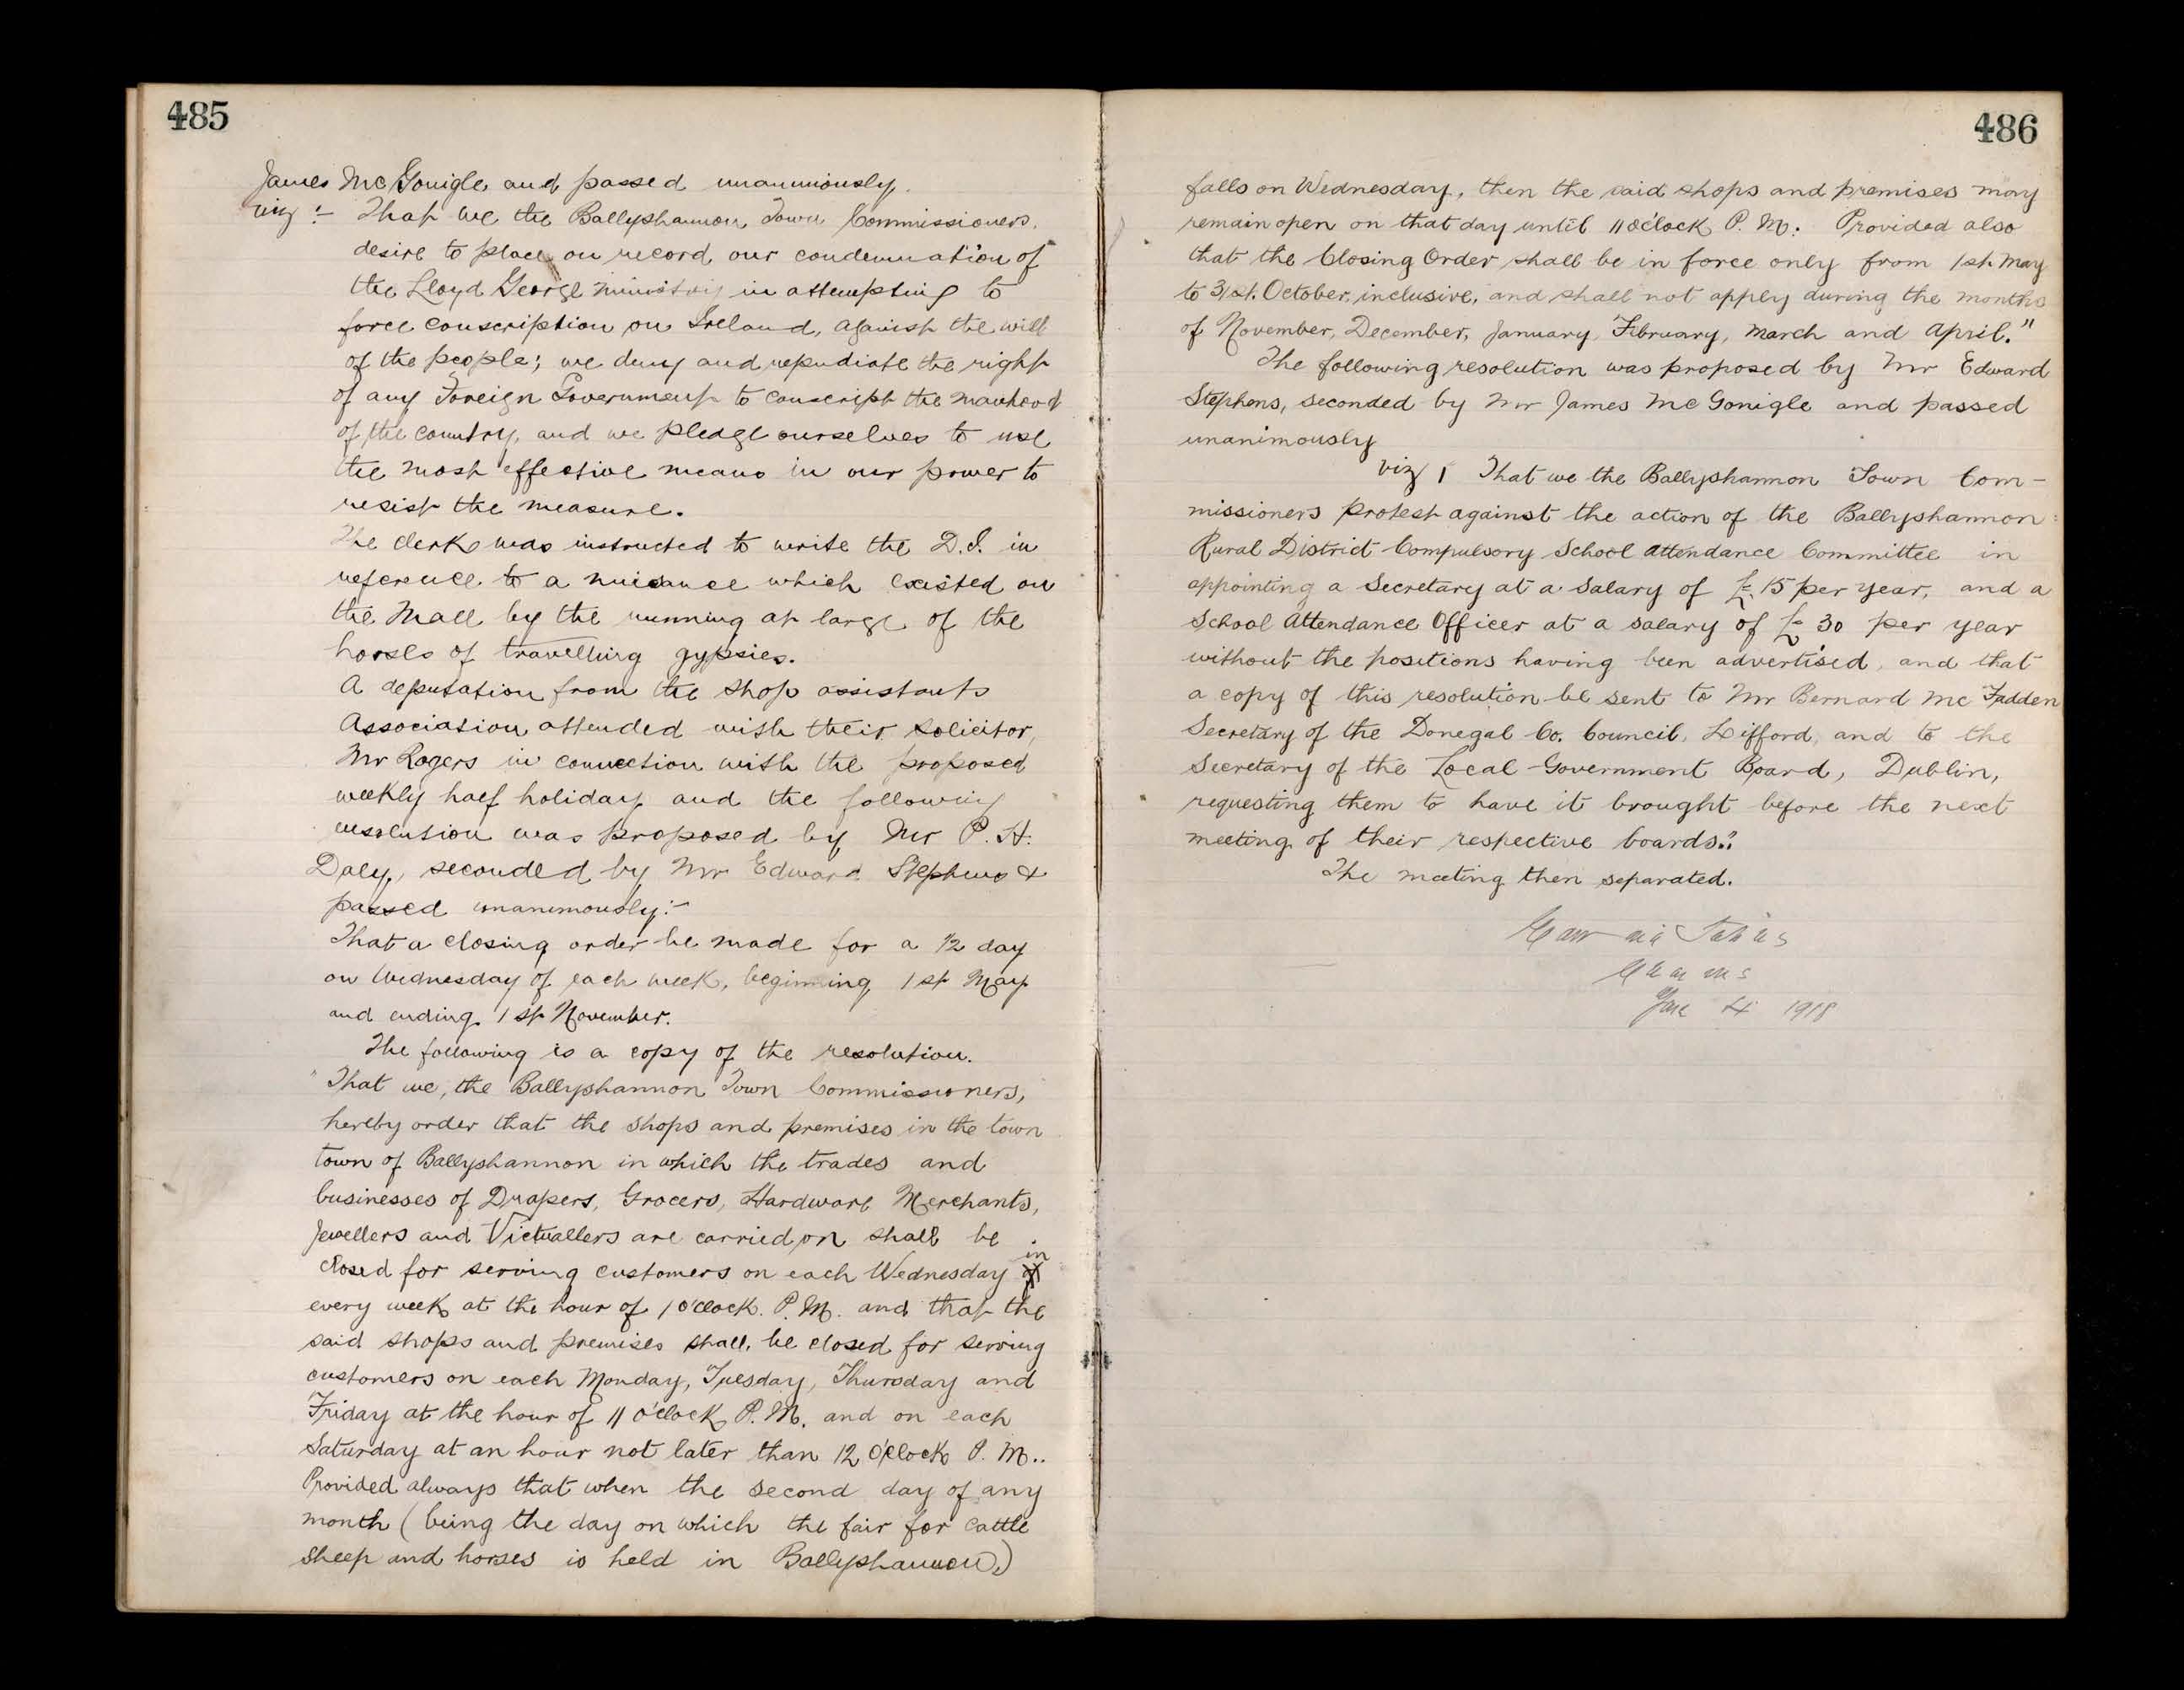 485
James McGonigle and passed unanimously.
viz :- That we the Ballyshannon Town Commissioners.
desire to place on record our condemnation of
the Lloyd George ministry in attempting to
force conscription on Ireland, against the will
of the people; we deny and repudiate the right
of any Foreign Government to conscript the manhood
of the country, and we pledge ourselves to use
the most effective means in our power to
resist the measure.
The clerk was instructed to write the D.I. in
reference to a nuisance which existed on
the Mall by the running at large of the
horses of travelling gypsies.
A deputation from the shop assistants
Association attended with their solicitor,
Mr Rogers in connection with the proposed
weekly half holiday and the following
resolution was proposed by Mr P. H.
Daly, seconded by Mr Edward Stephens &
passed unanimously:-
That a closing order be made for a 1/2 day
on Wednesday of each week, beginning 1st May
and ending 1st November.
The following is a copy of the resolution.
"That we, the Ballyshannon Town Commissioners,
hereby order that the shops and premises in the town
town of Ballyshannon in which the trades and
businesses of Drapers, Grocers, Hardware Merchants,
Jewellers and Victuallers are carried on shall be
closed for serving customers on each Wednesday in
every week at the hour of 1 o'clock. P.M. and that the
said shops and premises shall be closed for serving
customers on each Monday, Tuesday, Thursday and
Friday at the hour of 11 o'clock P.M. and on each
Saturday at an hour not later than 12 o'clock P.M..
Provided always that when the second day of any
month (being the day on which the fair for cattle
sheep and horses is held in Ballyshannon,)
486
falls on Wednesday, then the said shops and premises may
remain open on that day until 11 o'clock P.M. Provided also
that the Closing Order shall be in force only from 1st May
to 31st. October, inclusive, and shall not apply during the months
of November, December, January, February, March and April."
The following resolution was proposed by Mr Edward
Stephens, seconded by Mr James McGonigle and passed
unanimously
viz / That we the Ballyshannon Town Com-
missioners protest against the action of the Ballyshannon
Rural District Compulsory School Attendance Committee in
appointing a Secretary at a salary of £15 per year, and a
School Attendance Officer at a salary of £30 per year
without the positions having been advertised, and that
a copy of this resolution be sent to Mr Bernard McFadden
Secretary of the Donegal Co. Council, Lifford, and to the
Secretary of the Local Government Board, Dublin,
requesting them to have it brought before the next
meeting of their respective boards."
The meeting then separated.
June 4 1918